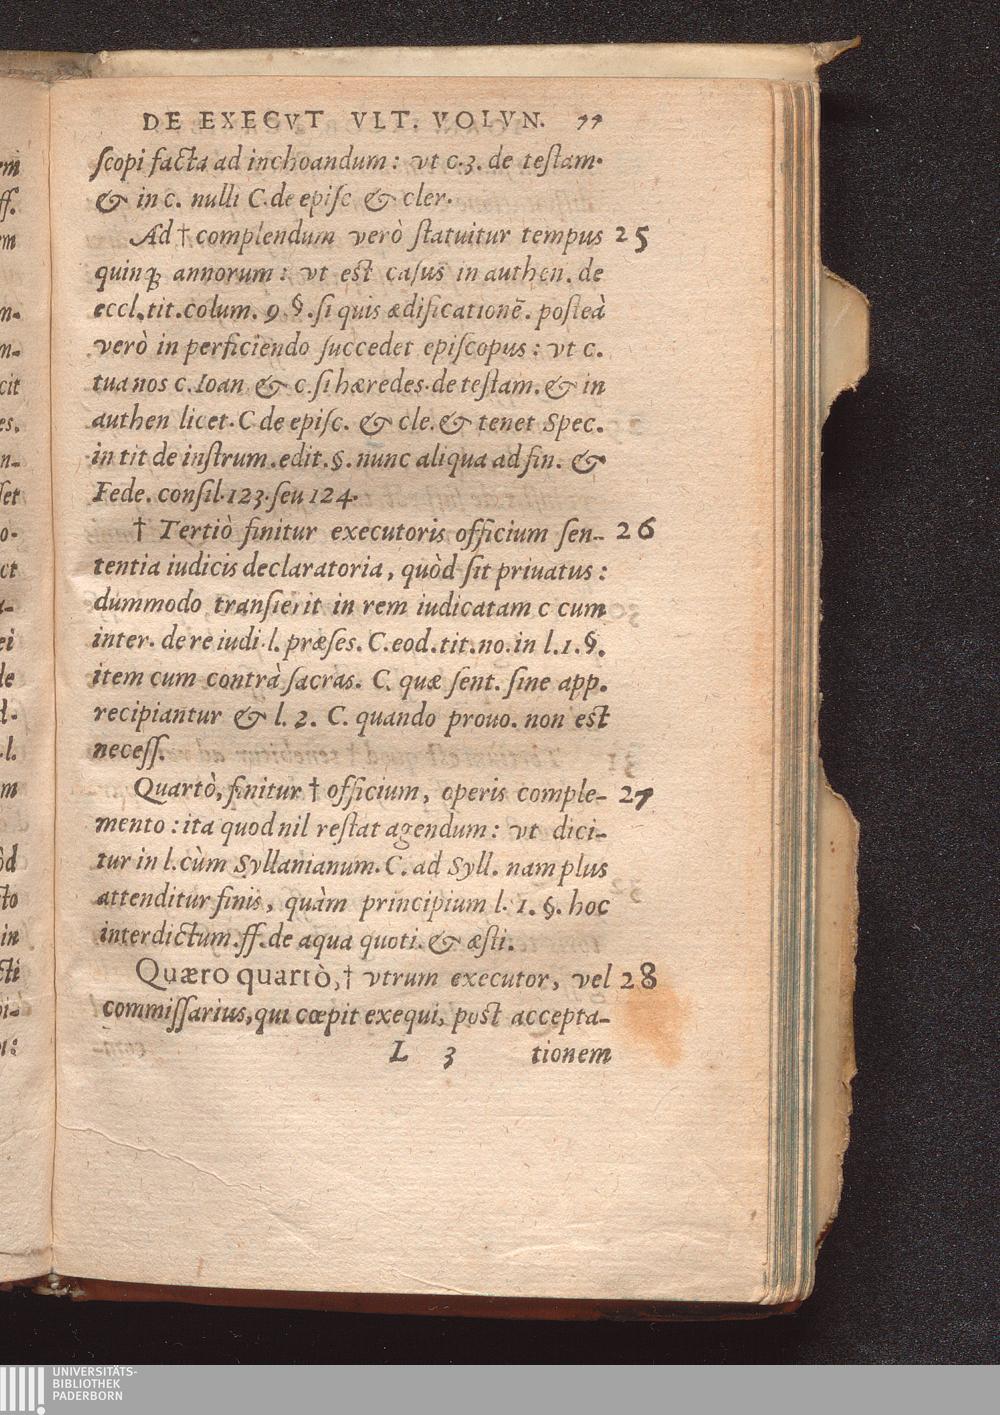 DE EXECVT VLT. VOLVN. 77
ſcopi facta ad inchoandum: vt c.3. de teſtam.
& in c. nulli C. de epiſc & cler.
Ad † complendum verò ſtatuitur tempus 25
quinq; annorum: vt est caſus in authen. de
eccl. tit. colum. 9 §. ſi quis ædificationē. poſteà
verò in perficiendo ſuccedet epiſcopus: vt c.
tua nos c. Ioan & c. ſi hæredes. de teſtam. & in
authen licet. C de epiſc. & cle. & tenet Spec.
in tit de inſtrum. edit. §. nunc aliqua ad fin. &
Fede. conſil. 123. ſeu 124.
† Tertiò finitur executoris officium ſen- 26
tentia iudicis declaratoria, quòd ſit priuatus:
dummodo tranſierit in rem iudicatam c cum
inter. de re iudi. l. præſes. C. eod. tit. no. in l. 1. §.
item cum contrà ſacras. C. quæ ſent. ſine app.
recipiantur & l. 2. C. quando prouo. non est
neceſſ.
Quartò, finitur † officium, operis comple- 27
mento: ita quod nil reſtat agendum: vt dici-
tur in l. cùm Syllanianum. C. ad Syll. nam plus
attenditur finis, quàm principium l. 1. §. hoc
interdictum. ff. de aqua quoti. & æſti.
Quæro quartò, † vtrum executor, vel 28
commiſſarius, qui cœpit exequi, post accepta-
L 3 tionem
UNIVERSITÄTS-
BIBLIOTHEK
PADERBORN